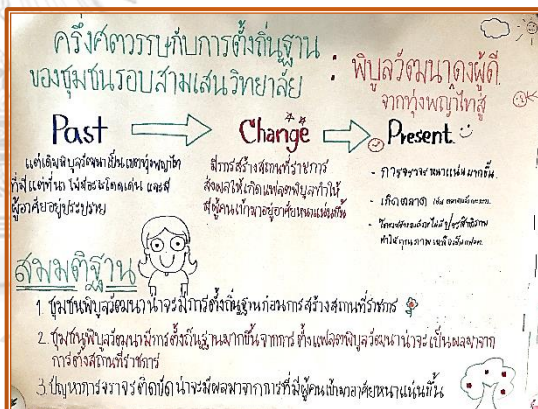 ครึ่งศตวรรษกับการตั้งถิ่นฐาน
ของชุมชนรอบสามเสนวิทยาลัย
: พิบูลวัฒนาดงผู้ดี
จากทุ่งพญาไทสู่
Past
Change
Present
แต่เดิมพิบูลวัฒนาเป็นเขตทุ่งพญาไท
ที่มีแต่ที่นา ไม่ค่อยโดดเด่น และมี
ผู้อาศัยอยู่ประปราย
มีการสร้างสถานที่ราชการ
ส่งผลให้เกิดแฟลตพิบูลทำให้
มีผู้คนเข้ามาอยู่อาศัยหนาแน่นขึ้น
- การจราจรหนาแน่นมากขึ้น
- เกิดตลาด เช่น
ทำให้คุณภาพ
สมมติฐาน
1. ชุมชนพิบูลวัฒนาน่าจะมีการตั้งถิ่นฐานก่อนการสร้างสถานที่ราชการ
2. ชุมชนพิบูลวัฒนามีการตั้งถิ่นฐานมากขึ้นจากการ ตั้งแฟลตพิบูลวัฒนาน่าจะเป็นผลมาจาก
การตั้งสถานที่ราชการ
3. ปัญหาการจราจรติดขัดน่าจะมีผลมาจากการที่มีผู้คนเข้ามาอาศัยหนาแน่นขึ้น